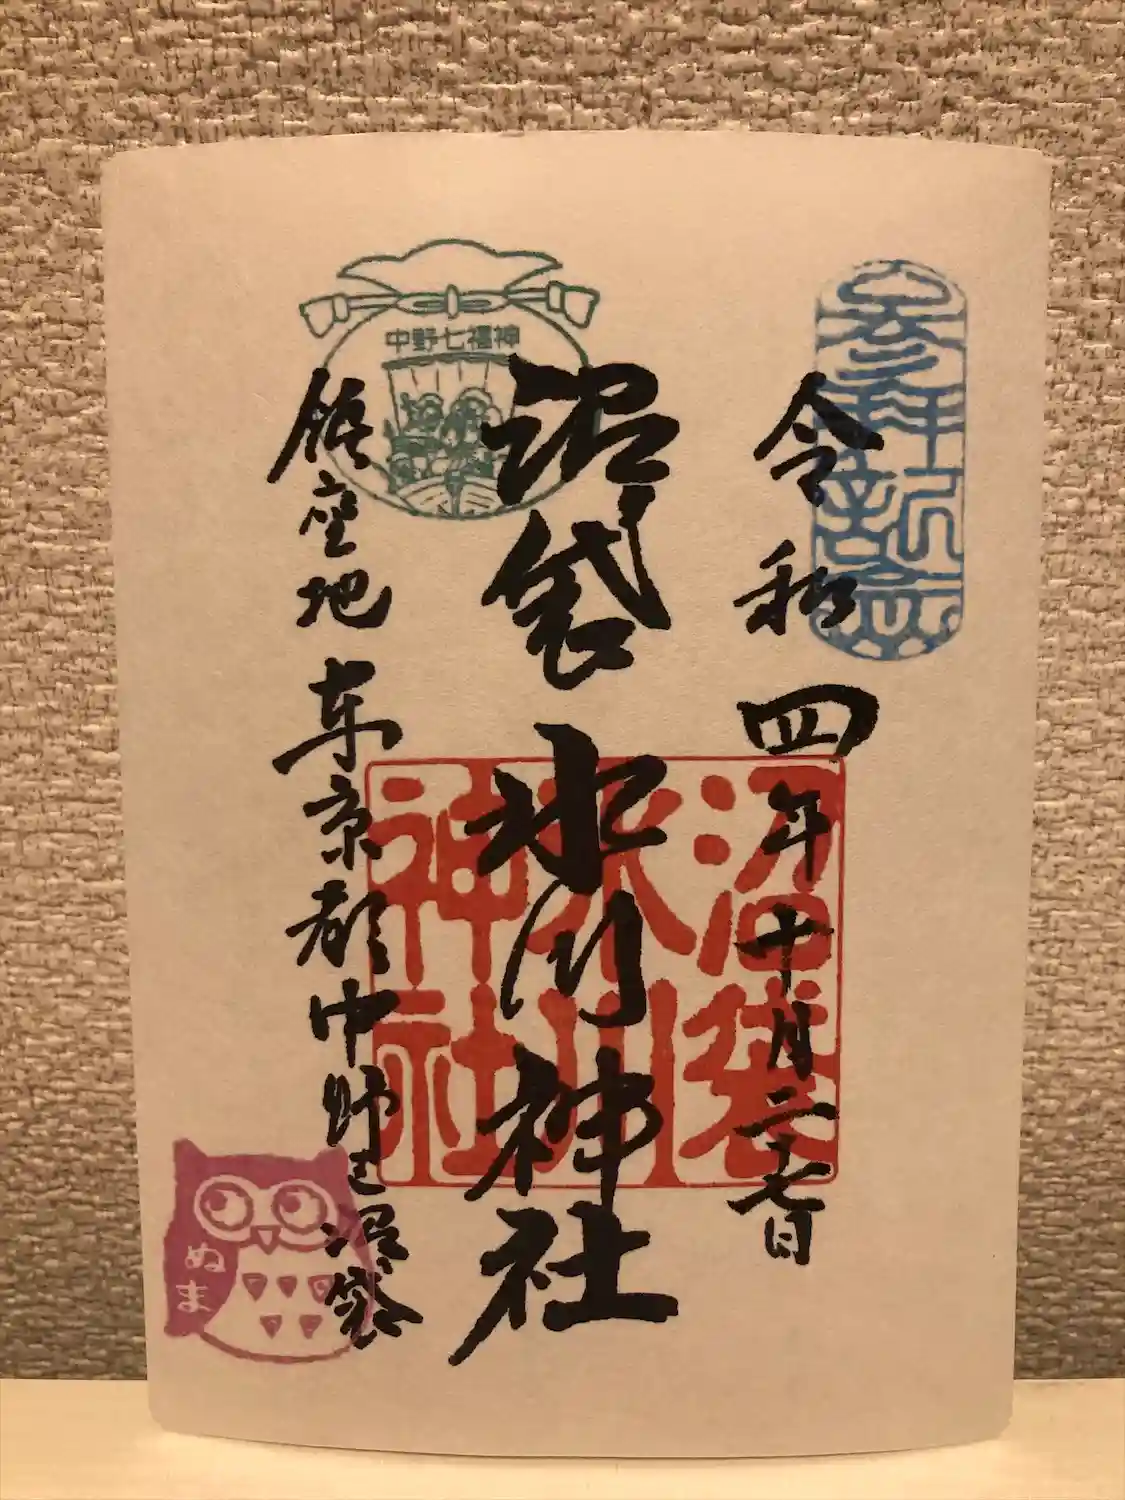 参拝祈念
令和四年十月二十七日
中野七福神
沼袋氷川神社
沼袋
氷川
神社
鎮座地 東京都中野区沼袋
ぬま